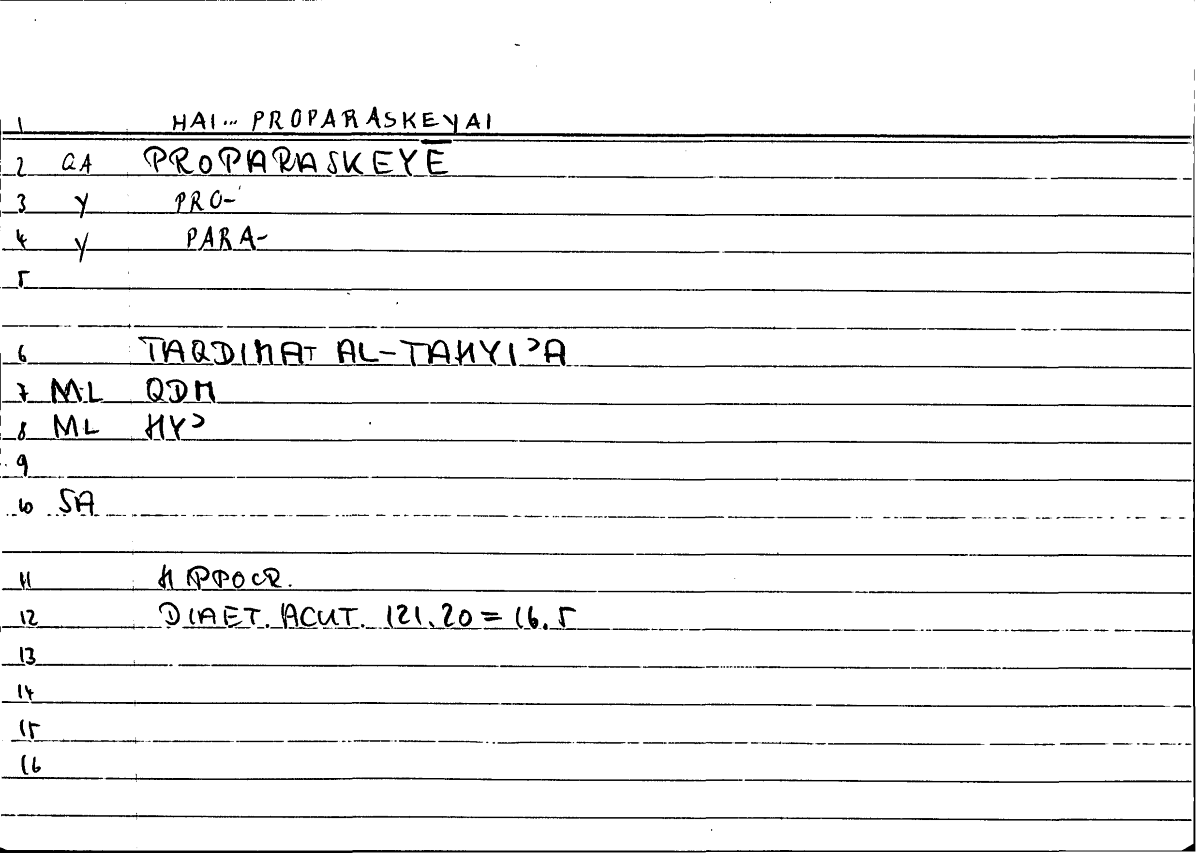 1 HAI... PROPARASKEYAI
2 QA PROPARASKEYĒ
3 Y PRO-
4 Y PARA-
5
6 TAQDIMAT AL-TAHYIʾA
7 ML QDM
8 ML HYʾ
9
10 SA
11 HIPPOCR.
12 DIAET. ACUT. 121.20 = 16.5
13
14
15
16